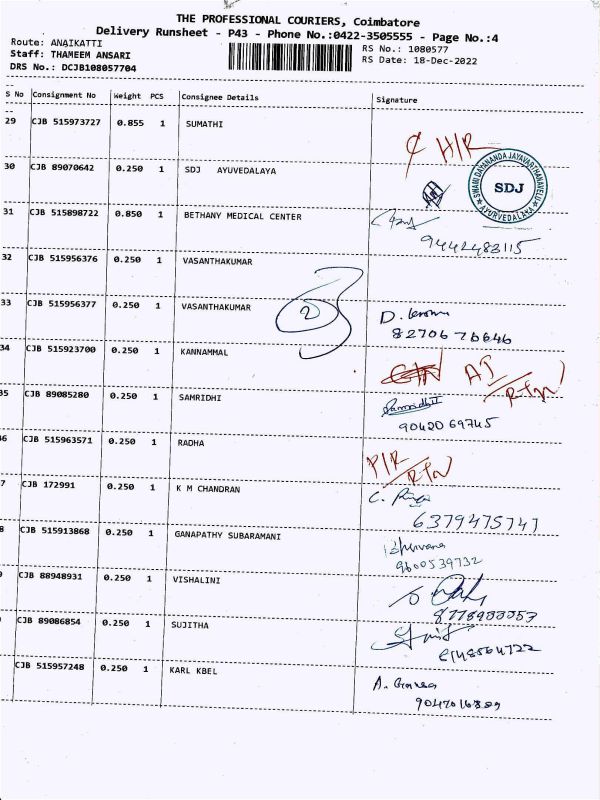 THE PROFESSIONAL COURIERS, Coimbatore
Delivery Runsheet - P43 - Phone No.:0422-3505555 - Page No.:4
Route: ANAIKATTI
RS No.: 1080577
Staff: THAMEEM ANSARI
RS Date: 18-Dec-2022
DRS No.: DCJB108057704
S No Consignment No Weight PCS Consignee Details Signature
29 CJB 515973727 0.855 1 SUMATHI
¢ H/R
30 CJB 89070642 0.250 1 SDJ AYUVEDALAYA
SWAMI DAYANANDA JAYAVARTHANAVELU
SDJ
AYURVEDALAYA
31 CJB 515898722 0.850 1 BETHANY MEDICAL CENTER
9442483115
32 CJB 515956376 0.250 1 VASANTHAKUMAR
2
33 CJB 515956377 0.250 1 VASANTHAKUMAR
D.
8270676646
34 CJB 515923700 0.250 1 KANNAMMAL
AJ
RTN
35 CJB 89085280 0.250 1 SAMRIDHI
9042069745
36 CJB 515963571 0.250 1 RADHA
P/R
RTN
7 CJB 172991 0.250 1 K M CHANDRAN
C.
6379475747
8 CJB 515913868 0.250 1 GANAPATHY SUBARAMANI
9600539732
9 CJB 88948931 0.250 1 VISHALINI
CJB 89086854 0.250 1 SUJITHA
CJB 515957248 0.250 1 KARL KBEL
A.